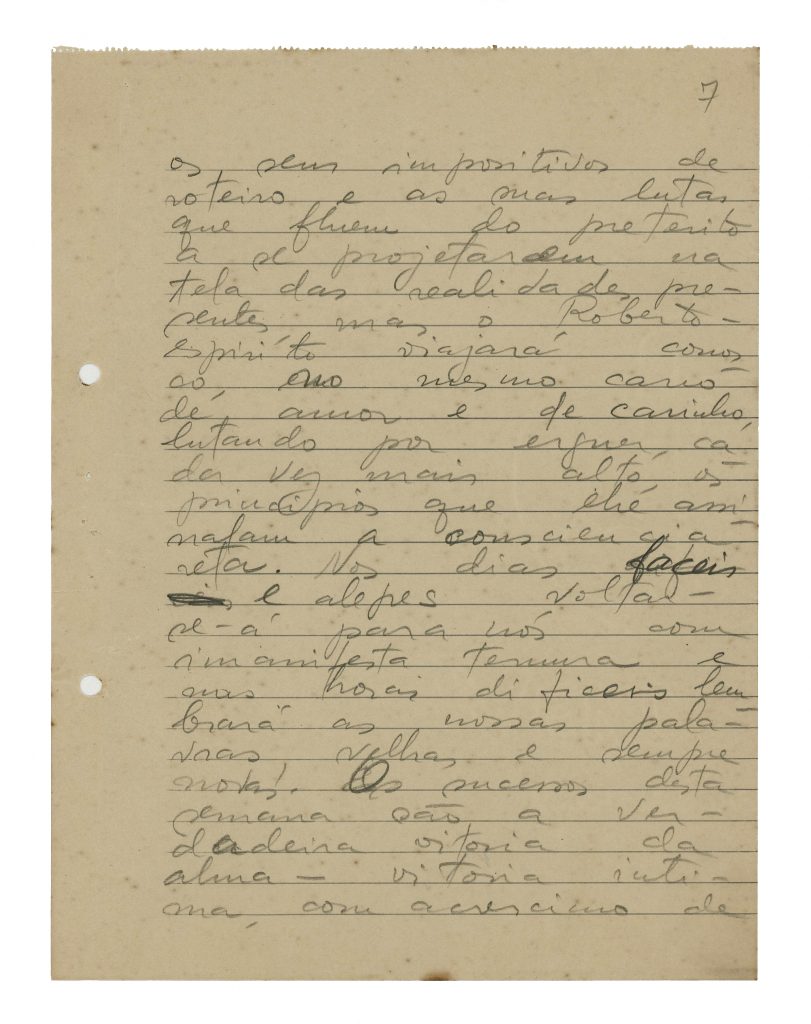 7
os seus impositivos de
roteiro e as suas lutas
que fluem do preterito
a se projetarem na
tela das realidades pre-
sentes, mas o Roberto-
espirito viajará conos
co, no mesmo carro
de amor e de carinho,
lutando por erguer, ca
da vez mais alto, os
principios que lhe assi
nalam a consciencia
reta. Nos dias faceis
e alegres voltar-
se-á para nós com
imanifesta ternura e
nas horas dificeis lem
brará as nossas pala-
vras velhas e sempre
novas. Os sucessos desta
semana são a ver-
dadeira vitoria da
alma - vitoria inti-
ma, com acrescimo de